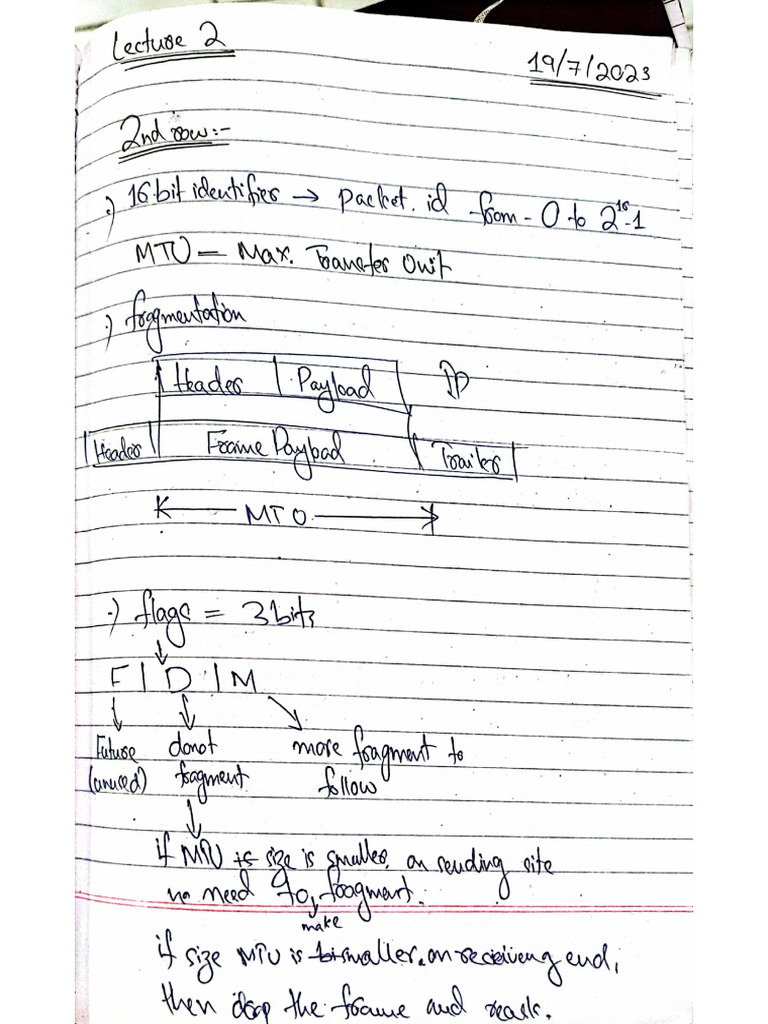 Lecture 2
19/7/2023
2nd row:-
:) 16 bit identifier → Packet. id from - 0 to 2^16-1
MTU — Max. Transfer Unit
:) fragmentation
Header | Payload IP
Header | Frame Payload | Trailer
MTU
:) flags = 3 bits
F | D | M
Future donot more fragment to
(unused) fragment follow
if MTU size is smaller on sending site
no need to fragment.
make
if size MTU is smaller on receiving end,
then drop the frame and